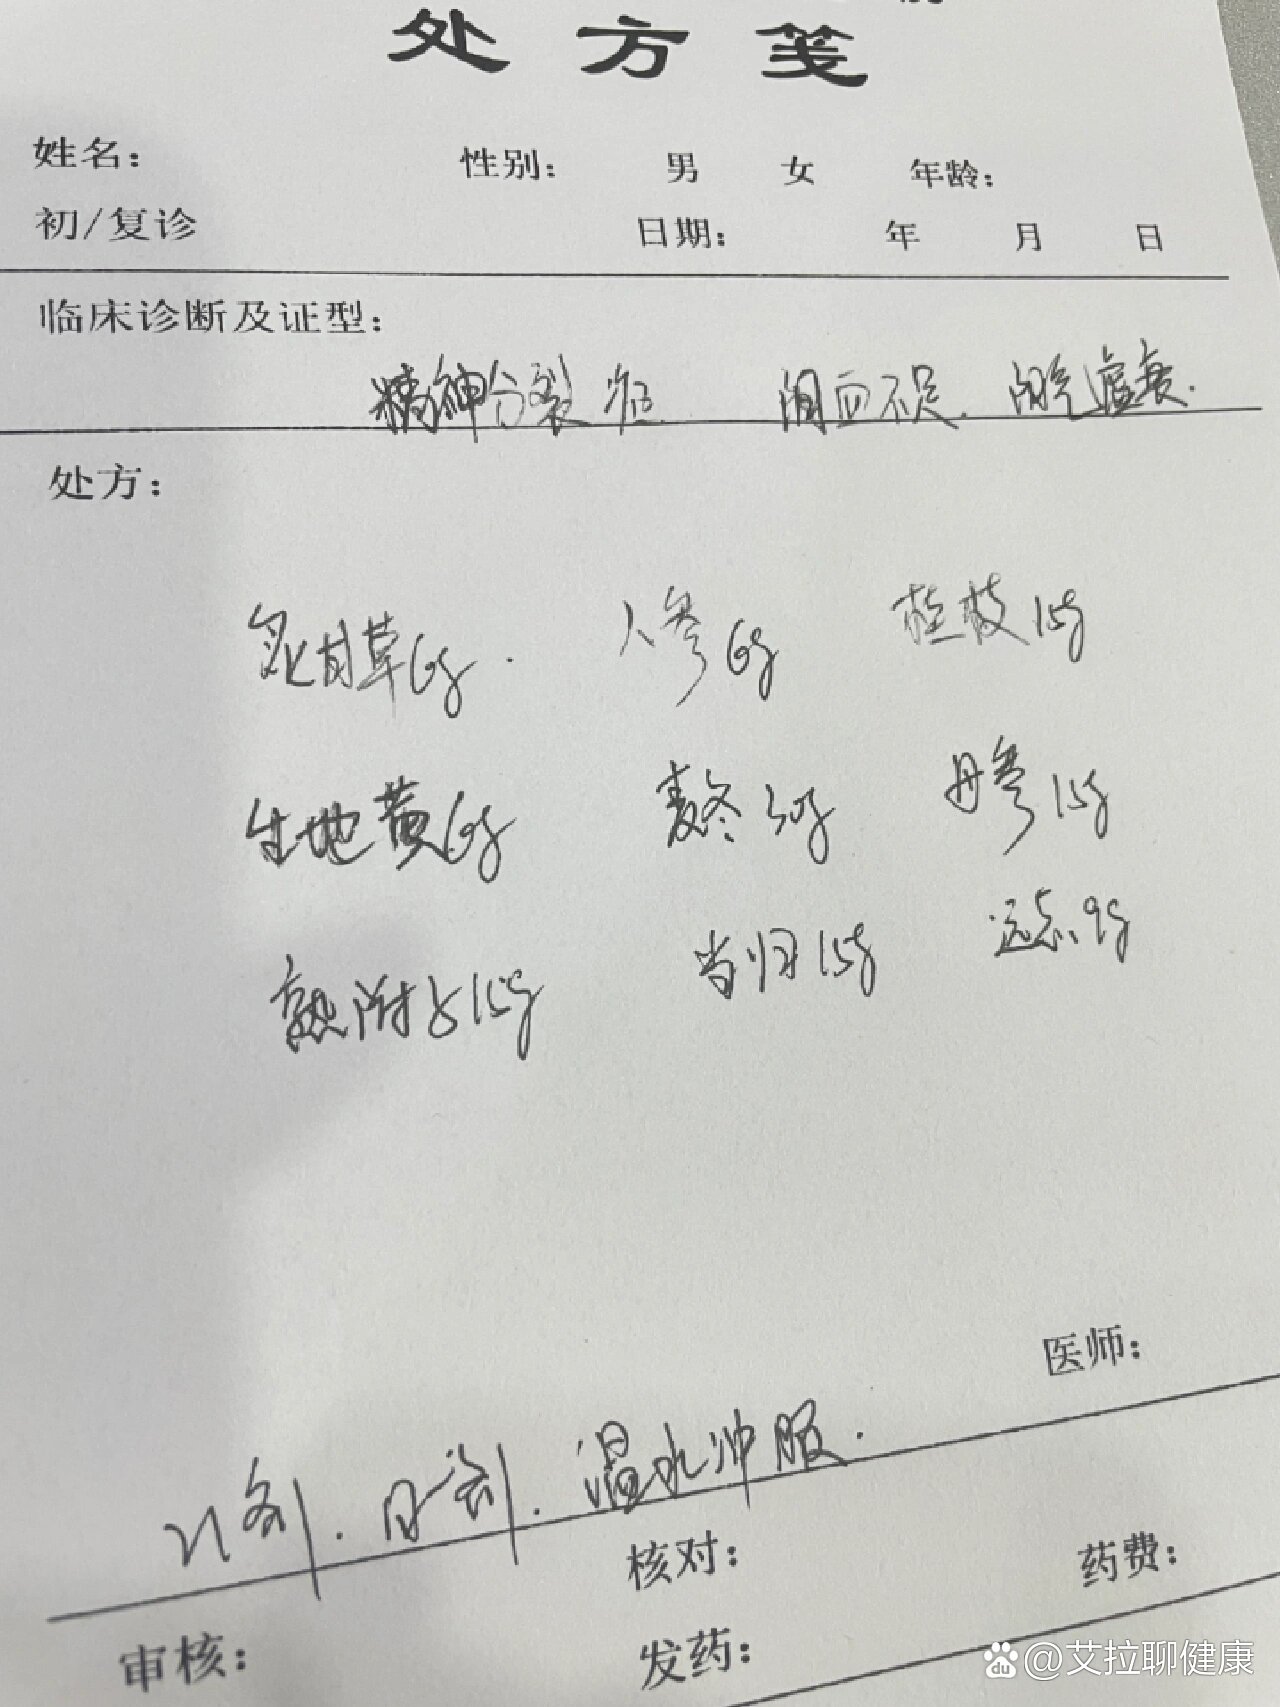 处方笺
姓名： 性别： 男 女 年龄：
初/复诊 日期： 年 月 日
临床诊断及证型：
精神分裂症 阴血不足. 阳气虚衰.
处方：
炙甘草6g. 人参6g 桂枝15g
生地黄6g 麦冬30g 丹参15g
熟附子15g 当归15g 远志9g
医师：
21剂. 日1剂. 温水冲服.
核对： 药费：
审核： 发药：
@艾拉聊健康